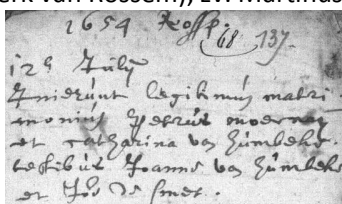 erk van Rossem), zv. Martinus
1654 Rossp. 68 137.
12ª Julÿ
Inierunt legitimum matri
monium Petrus
et Catharina van Humbeke.
testibus Joanne van Humbeke
et Joõ De Smet.